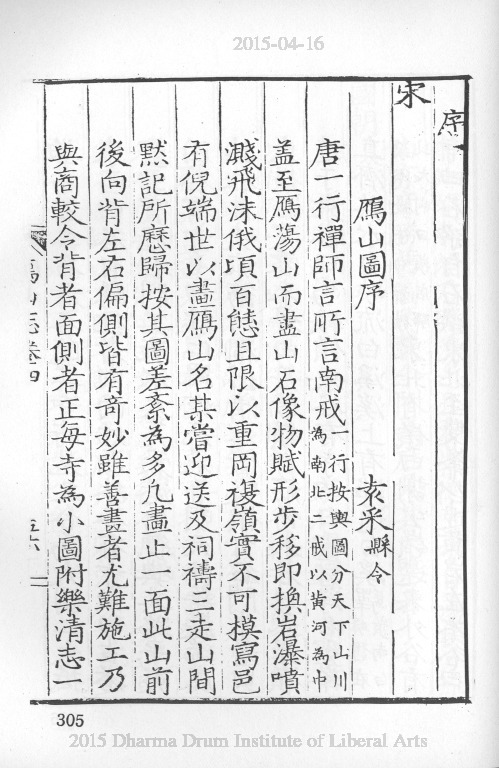 2015-04-16
序
宋
鴈山圖序
袁采縣令
唐一行禪師言所言南戒一行按輿圖分天下山川為南北二戒以黃河為中
盖至鴈蕩山而盡山石像物賦形步移即換岩瀑噴
濺飛沫俄頃百態且限以重岡複嶺實不可模寫邑
有倪端世以畫鴈山名某嘗迎送及祠禱三走山間
默記所歷歸按其圖差紊為多凢畫止一面此山前
後向背左右偏側皆有奇妙雖善畫者尤難施工乃
與商較令背者面側者正每寺為小圖附樂清志一
山志卷四
305
2015 Dharma Drum Institute of Liberal Arts